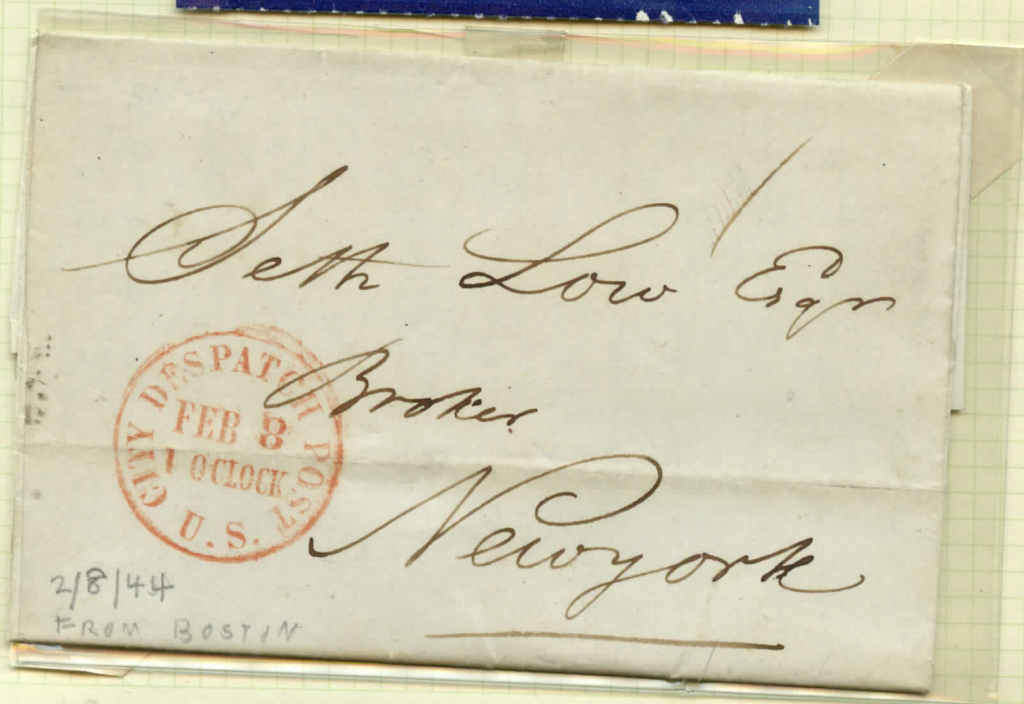 Seth Low Esqr
Broker
New york
CITY DESPATCH POST
FEB 8
1 O'CLOCK
U.S.
2/8/44
FROM BOSTON